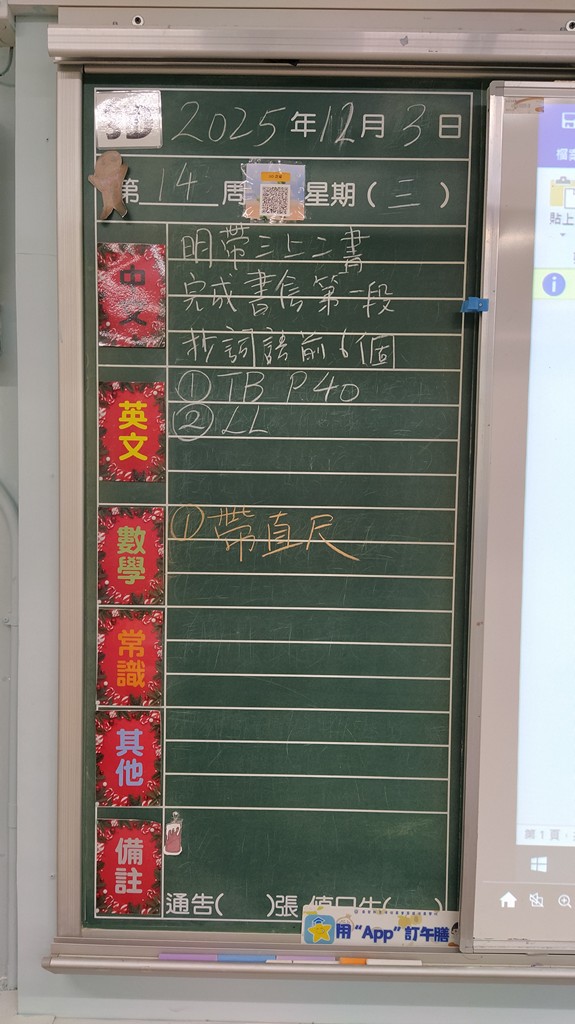 3D 2025年12月3日
第14周 星期(三)
中文
明帶三上二書
完成書套第一段
抄詞語前6個
英文
① TB P.40
② LL
數學
① 帶直尺
常識
其他
備註
通告( )張 值日生( )
用“App”訂午膳
檔案
貼上
第1頁，